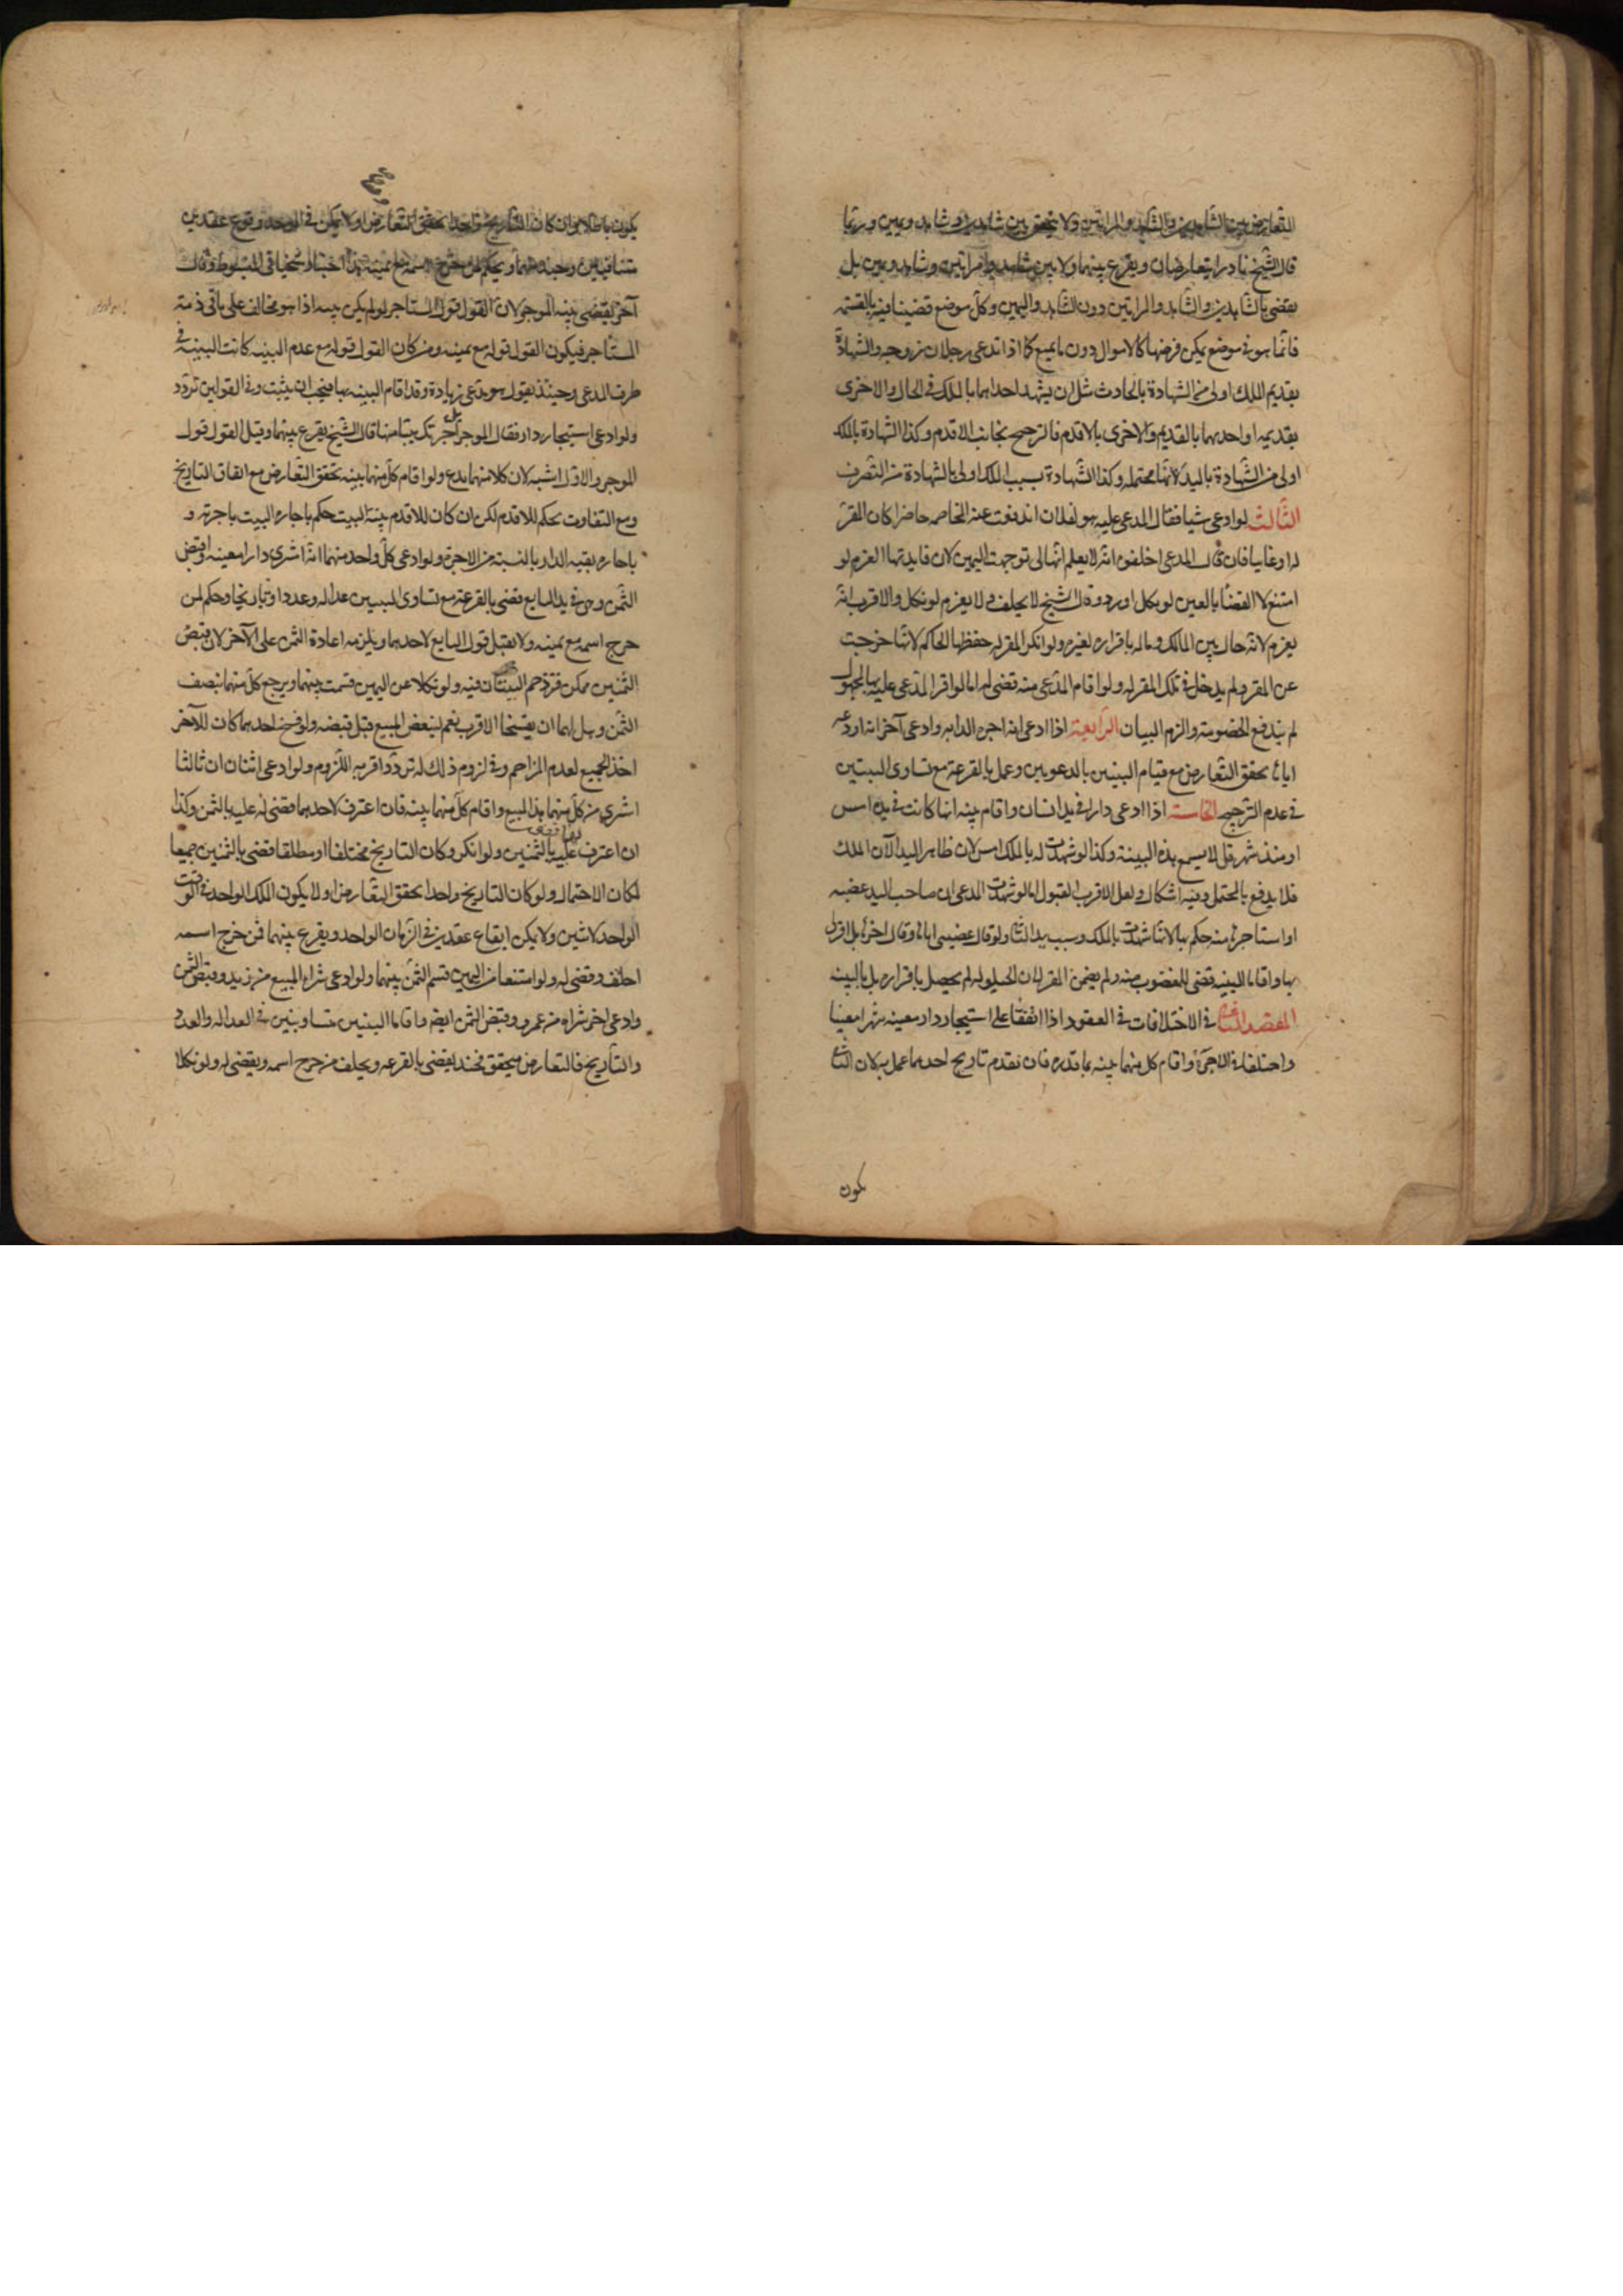 التعارض بين الشاهدين والشاهد والمراتين ولا يتحقق بين شاهدين وشاهد ويمين وربما
قال الشيخ نادرا يتعارضان ويقرع بينهما ولا بين شاهد وامراتين وشاهد ويمين بل
يقضى بالشاهدين والشاهد والمراتين دون الشاهد واليمين وكل موضع قضينا فيه بالقسمه
فانما هو فى موضع يمكن فرضها كالاموال دون ما يمتنع كما اذا تداعى رجلان زوجه والشهادة
بقديم الملك اولى من الشهادة بالحادث مثل ان يشهد احداهما بالملك فى الحال والاخرى
بقديمه او احديهما بالقديم والاخرى بالاقدم فالترجيح بجانب الاقدم وكذا الشهادة بالملك
اولى من الشهادة باليد لانها محتمله وكذا الشهادة بسبب الملك اولى بالشهادة من التصرف
الثالث لو ادعى شيا فقال المدعى عليه هو لفلان اندفعت عنه المخاصمه حاضرا كان المقر
له او غايبا فان قال المدعى احلفوه انه لا يعلم انها لى توجهت اليمين لان فايدتها الغرم لو
امتنع لا القضا بالعين لو نكل او رد وقال الشيخ لا يحلف ولا يغرم لو نكل والاقرب انه
يغرم لانه حال بين المالك وماله باقراره لغيره ولو انكر المقر له حفظها الحاكم لانها خرجت
عن المقر ولم يدخل فى ملك المقر له ولو اقام المدعى بينه قضى له اما لو اقر المدعى عليه بها لمجهول
لم يندفع الخصومة والزم البيان الرابعة اذا ادعى انه اجره الدابه وادعى آخر انه اودعه
اياها تحقق التعارض مع قيام البينين بالدعويين وعمل بالقرعة مع تساوى البينتين
فى عدم الترجيح الخامسة اذا ادعى دارا فى يد انسان واقام بينه انها كانت فى يده امس
او منذ شهر قيل لا يسمع هذه البينة وكذا لو شهدت له بالملك امس لان ظاهر اليد الآن الملك
فلا يدفع بالمحتمل وفيه اشكال ولعل الاقرب القبول اما لو شهدت للمدعى ان صاحب اليد غصبه
او استاجرها منه حكم بها لانها شهدت بالملك وسبب يد الثانى ولو قال غصبنى اياها وقال اخر بل اقر لى
بها واقاما البينه قضى للمغصوب منه ولم يضمن المقر لان الحيلوله لم يحصل باقراره بل بالبينه
المقصد الثانى فى الاختلافات فى العقود اذا اتفقا على استيجار دار معينه شهرا معينا
واختلفا فى الاجرة واقام كل منهما بينه بما قدره فان تقدم تاريخ احدهما عمل به لان الثانى
يكون
يكون باطلا وان كان التاريخ واحدا تحقق التعارض اذ لا يمكن فى الواحد وقوع عقدين
متنافيين وحينئذ يقرع بينهما ويحكم لمن خرج اسمه مع يمينه هذا اختيار شيخنا فى المبسوط وقال
آخر يقضى ببينه الموجر لان القول قول المستاجر لو لم يكن بينه اذا هو مخالف على ما فى ذمة
المستاجر فيكون القول قوله مع يمينه ومن كان القول قوله مع عدم البينه كانت البينة فى
طرف المدعى وحينئذ يقول هو يدعى زيادة وقد اقام البينه بها فيجب ان يثبت وفى القولين تردد
ولو ادعى استيجار دار فقال الموجر بل اجرتك بيتا منها قال الشيخ يقرع بينهما وقيل القول قول
الموجر والاول اشبه لان كلا منهما مدع ولو اقام كل منهما بينه تحقق التعارض مع اتفاق التاريخ
ومع التفاوت يحكم للاقدم لكن ان كان الاقدم بينة البيت حكم باجارة البيت باجرته و
باجارة بقيه الدار بالنسبة من الاجرة ولو ادعى كل واحد منهما انه اشترى دارا معينه واقبض
الثمن وهى فى يد البايع قضى بالقرعة مع تساوى البينتين عداله وعددا وتاريخا وحكم لمن
خرج اسمه مع يمينه ولا يقبل قول البايع لاحدهما ويلزمه اعادة الثمن على الآخر لان قبض
الثمنين ممكن فتزدحم البينتان فيه ولو نكلا عن اليمين قسمت بينهما ويرجع كل منهما بنصف
الثمن وهل لهما ان يفسخا الاقرب نعم لتبعض المبيع قبل قبضه ولو فسخ احدهما كان للآخر
اخذ الجميع لعدم المزاحم وفى لزوم ذلك له تردد اقربه اللزوم ولو ادعى اثنان ان ثالثا
اشترى من كل منهما هذا المبيع واقام كل منهما بينه فان اعترف لاحدهما قضى له عليه بالثمن وكذا
ان اعترف لهما قضى عليه بالثمنين ولو انكر وكان التاريخ مختلفا او مطلقا قضى بالثمنين جميعا
لمكان الاحتمال ولو كان التاريخ واحدا تحقق التعارض اذ لا يكون الملك الواحد فى الوقت
الواحد لاثنين ولا يمكن ايقاع عقدين فى الزمان الواحد ويقرع بينهما فمن خرج اسمه
احلف وقضى له ولو امتنعا من اليمين قسم الثمن بينهما ولو ادعى شراء المبيع من زيد وقبض الثمن
وادعى اخر شراه من عمرو وقبض الثمن ايضا واقاما البينتين متساويتين فى العداله والعدد
والتاريخ فالتعارض متحقق فحينئذ يقضى بالقرعه ويحلف من خرج اسمه ويقضى له ولو نكلا